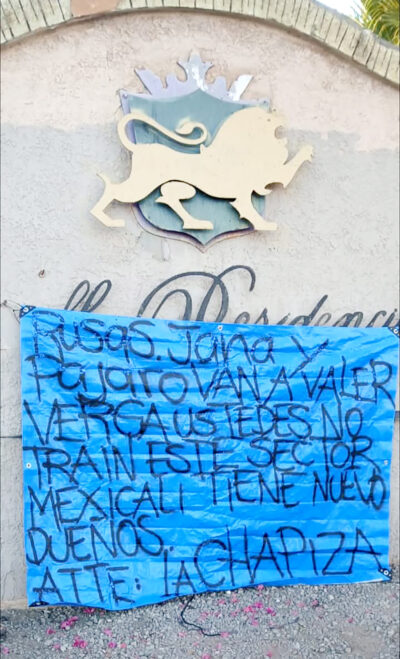 ll Residencia
RUSAS. Jana y
PájaroVAN A VALER
VERGA USTEDES NO
TRAIN ESTE SECTOR
MEXICALI TIENE NUEVO
DUEÑOS.
ATTE: LA CHAPIZA